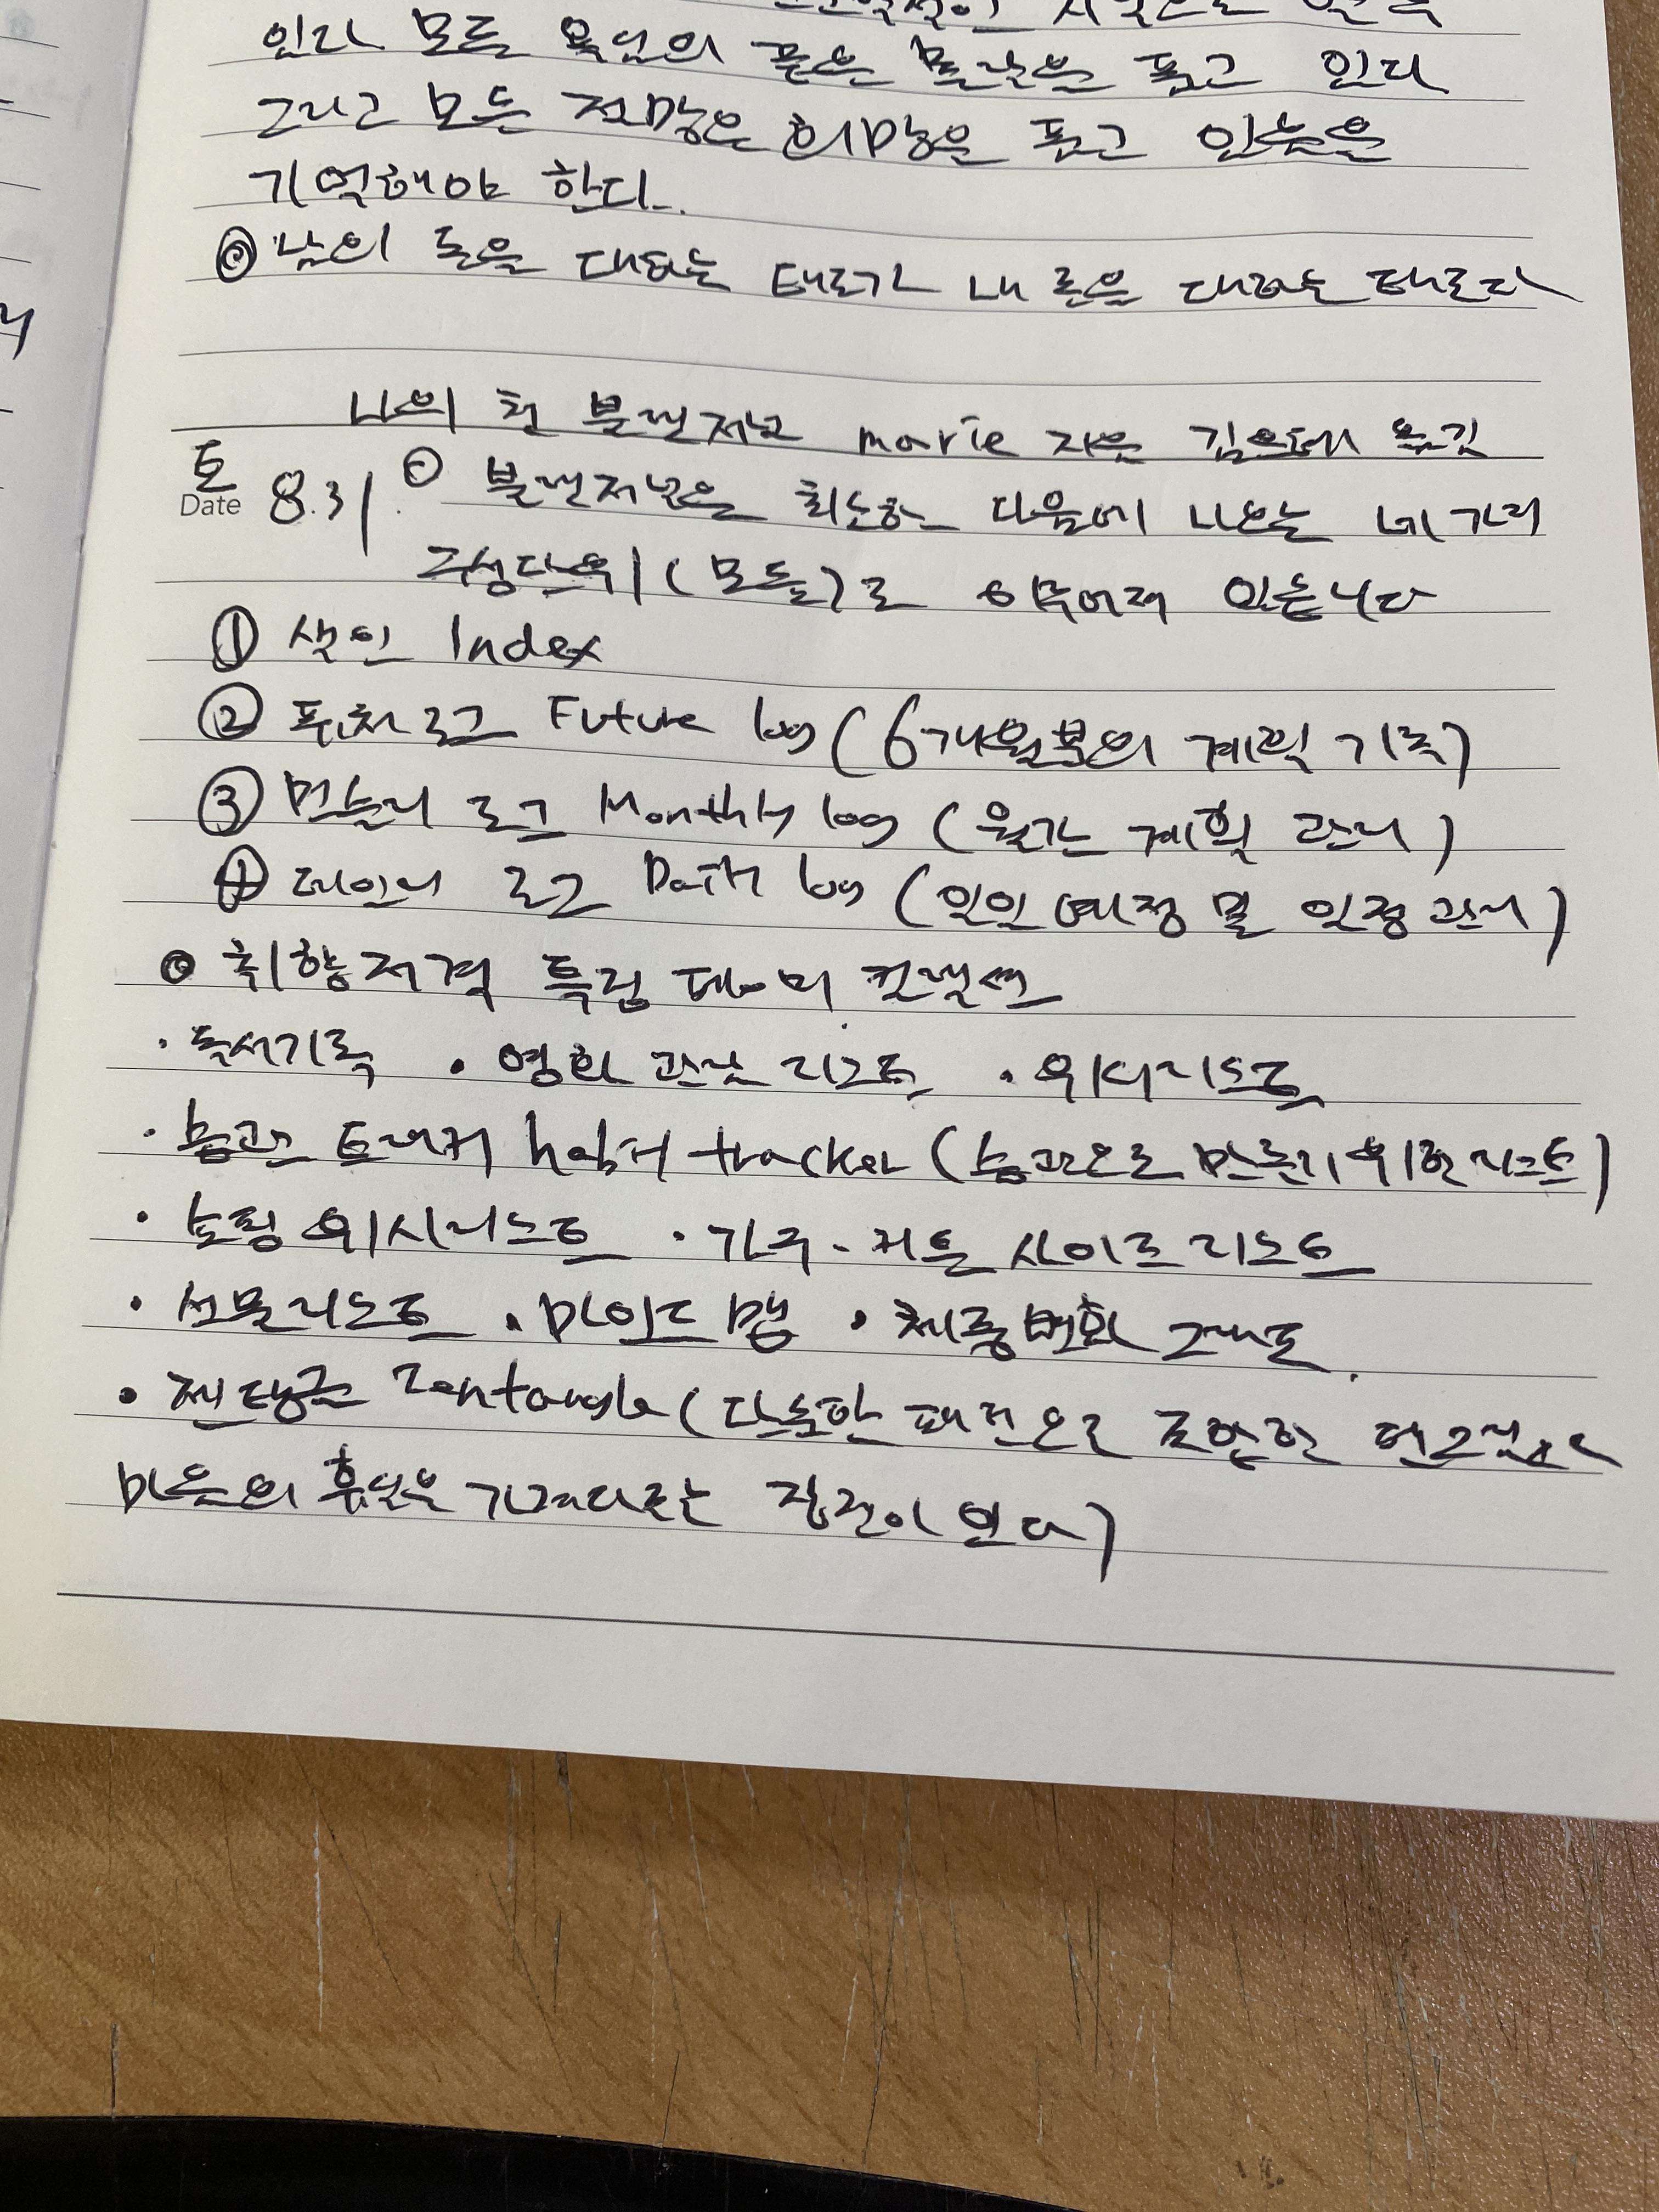 있다 모든 욕심의 끝은 몰락을 품고 있다
그리고 모든 절망은 희망을 품고 있음을
기억해야 한다.
◎ 남의 돈을 대하는 태도가 내 돈을 대하는 태도다
나의 첫 불렛저널 marie 지음 김은혜 옮김
토
Date 8.31. ⊙ 불렛저널은 최소한 다음에 나오는 네가지
구성단위(모듈)로 이루어져 있습니다
① 색인 Index
② 퓨처로그 Future log (6개월분의 계획 기록)
③ 먼슬리 로그 Monthly log (월간 계획 관리)
④ 데일리 로그 Daily log (일일 예정 및 일정 관리)
◎ 취향저격 특집 테마 컬렉션
· 독서기록 · 영화 관람 리스트 · 위시리스트
· 습관 트래커 habit tracker (습관으로 만들기 위한 리스트)
· 쇼핑 위시리스트 · 가구 - 커튼 사이즈 리스트
· 선물리스트 · 마인드 맵 · 체중변화 그래프.
· 젠탱글 Zentangle (단순한 패턴으로 조합한
마음의 휴식을 가져다주는 장점이 있다)